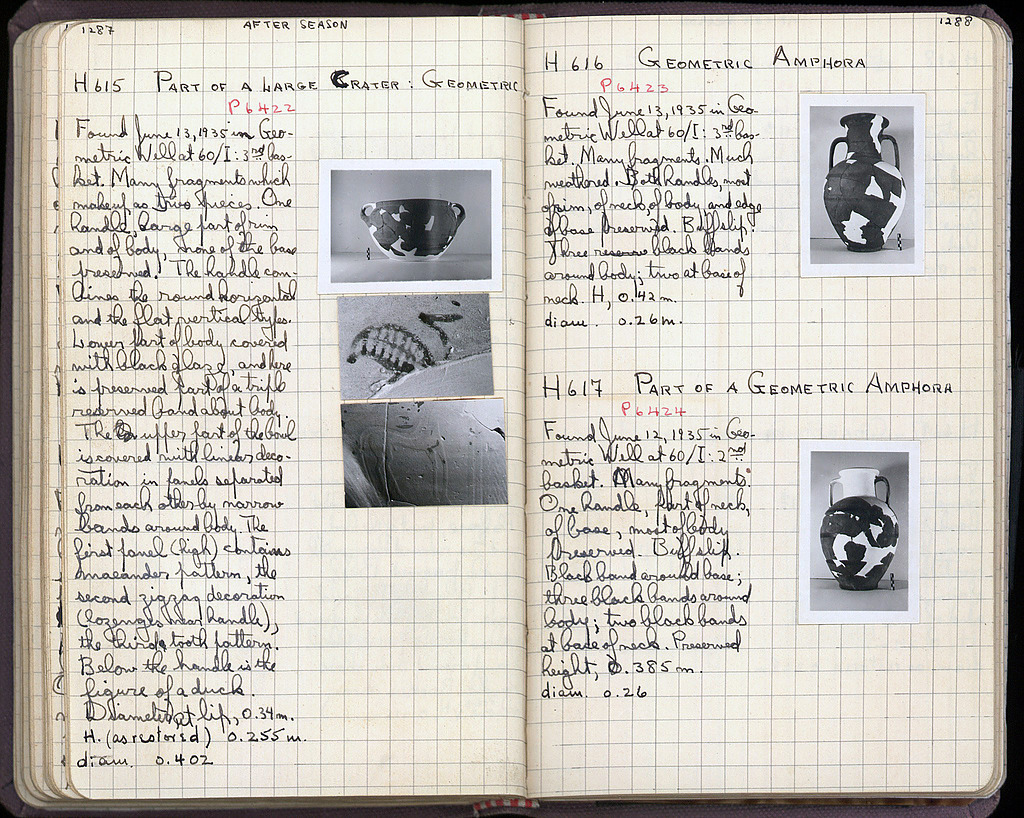 1287
AFTER SEASON
H 615 PART OF A LARGE CRATER : GEOMETRIC
P 6422
Found June 13, 1935 in Geo-
metric Well at 60/I : 3rd bas-
ket. Many fragments which
makeup as two pieces. One
handle, large part of rim
and of body, none of the base
preserved. The handle com-
bines the round horizontal
and the flat vertical types.
Lower part of body covered
with black glaze, and here
is preserved part of a triple
reserved band about body.
The upper part of the bowl
is covered with linear deco-
ration in panels separated
from each other by narrow
bands around body. The
first panel (high) contains
maeander pattern, the
second zigzag decoration
(lozenges near handle),
the third tooth pattern.
Below the handle is the
figure of a duck.
Diameter at lip, 0.34 m.
H. (as restored) 0.255 m.
diam. 0.402
1288
H 616 GEOMETRIC AMPHORA
P 6423
Found June 13, 1935 in Geo-
metric Well at 60/I : 3rd bas-
ket. Many fragments. Much
weathered. Both handles, most
of rim, of neck, of body, and edge
of base preserved. Buff slip.
Three reserve black bands
around body; two at base of
neck. H, 0.42 m.
diam. 0.26 m.
H 617 PART OF A GEOMETRIC AMPHORA
P 6424
Found June 12, 1935 in Geo-
metric Well at 60/I : 2nd
basket. Many fragments.
One handle, part of neck,
of base, most of body
preserved. Buff slip.
Black band around base;
three black bands around
body; two black bands
at base of neck. Preserved
height, 0.385 m.
diam. 0.26